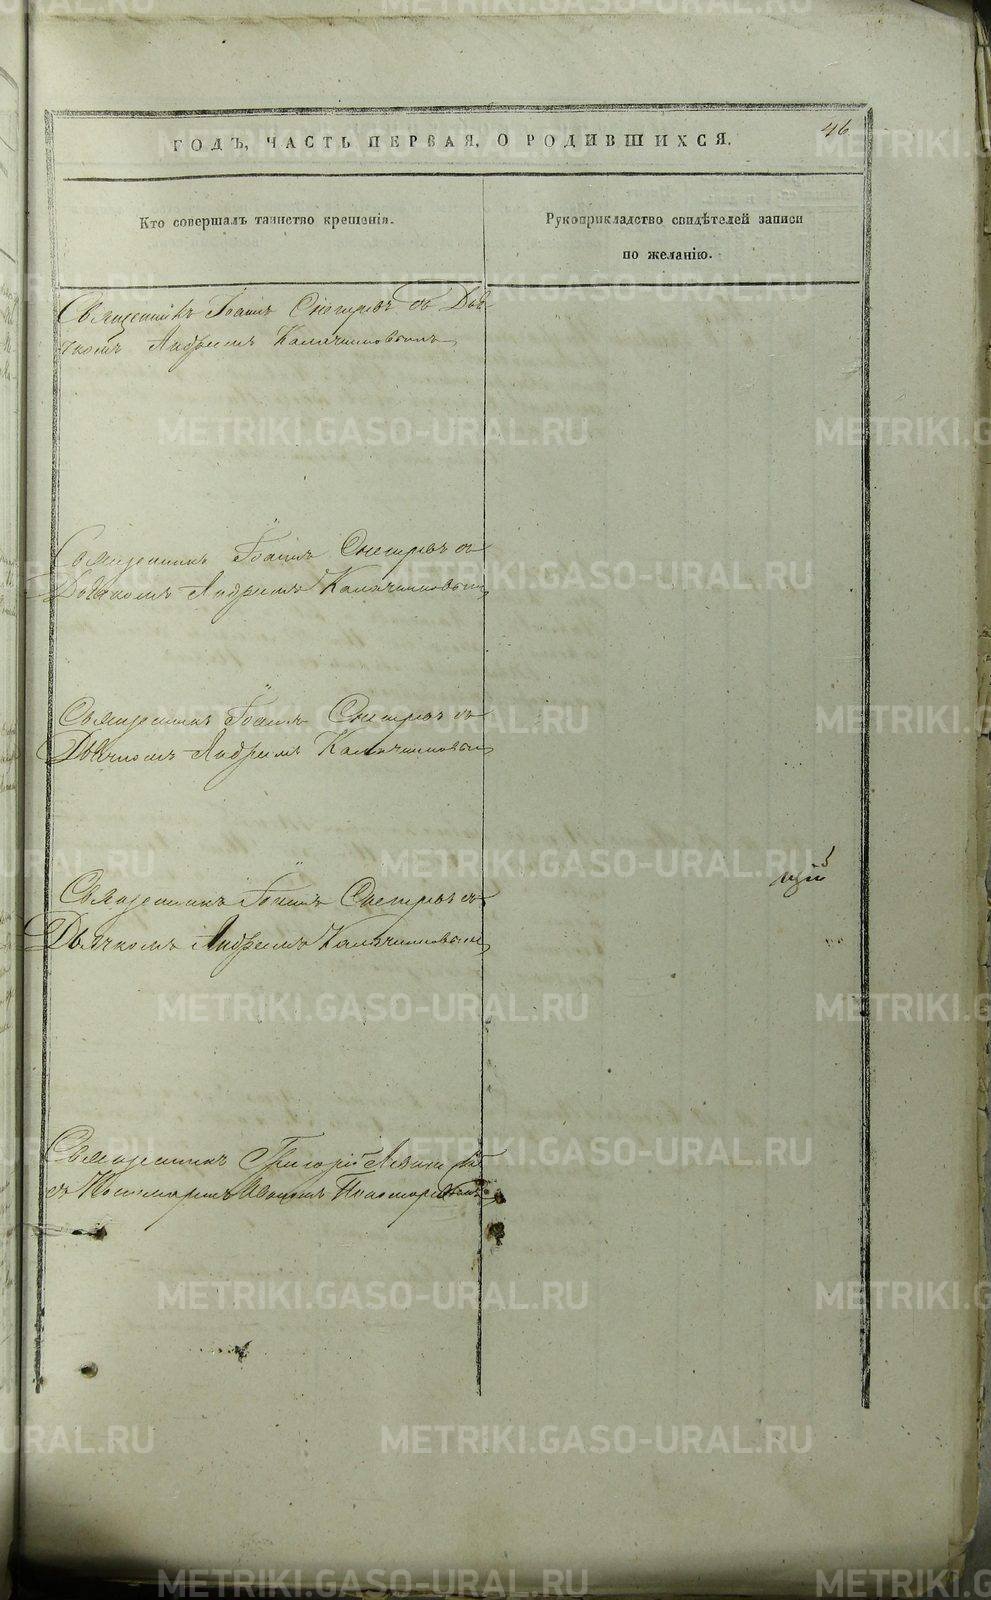 46
ГОДЪ, ЧАСТЬ ПЕРВАЯ, О РОДИВШИХСЯ.
Кто совершалъ таинство крещенія.
Рукоприкладство свидѣтелей записи
по желанію.
Священникъ Іоаннъ Снегиревъ съ Дья-
чкомъ Андреемъ Калачниковымъ
Священникъ Іоаннъ Снегиревъ съ
Дьячкомъ Андреемъ Калачниковым
Священникъ Іоаннъ Снегиревъ съ
Дьячкомъ Андреемъ Калачниковым
Священникъ Іоаннъ Снегиревъ съ
Дьячкомъ Андреемъ Калачниковым
щій
Священникъ Григорій
съ Пономаремъ Иваномъ Пономаревымъ
METRIKI.GASO-URAL.RU